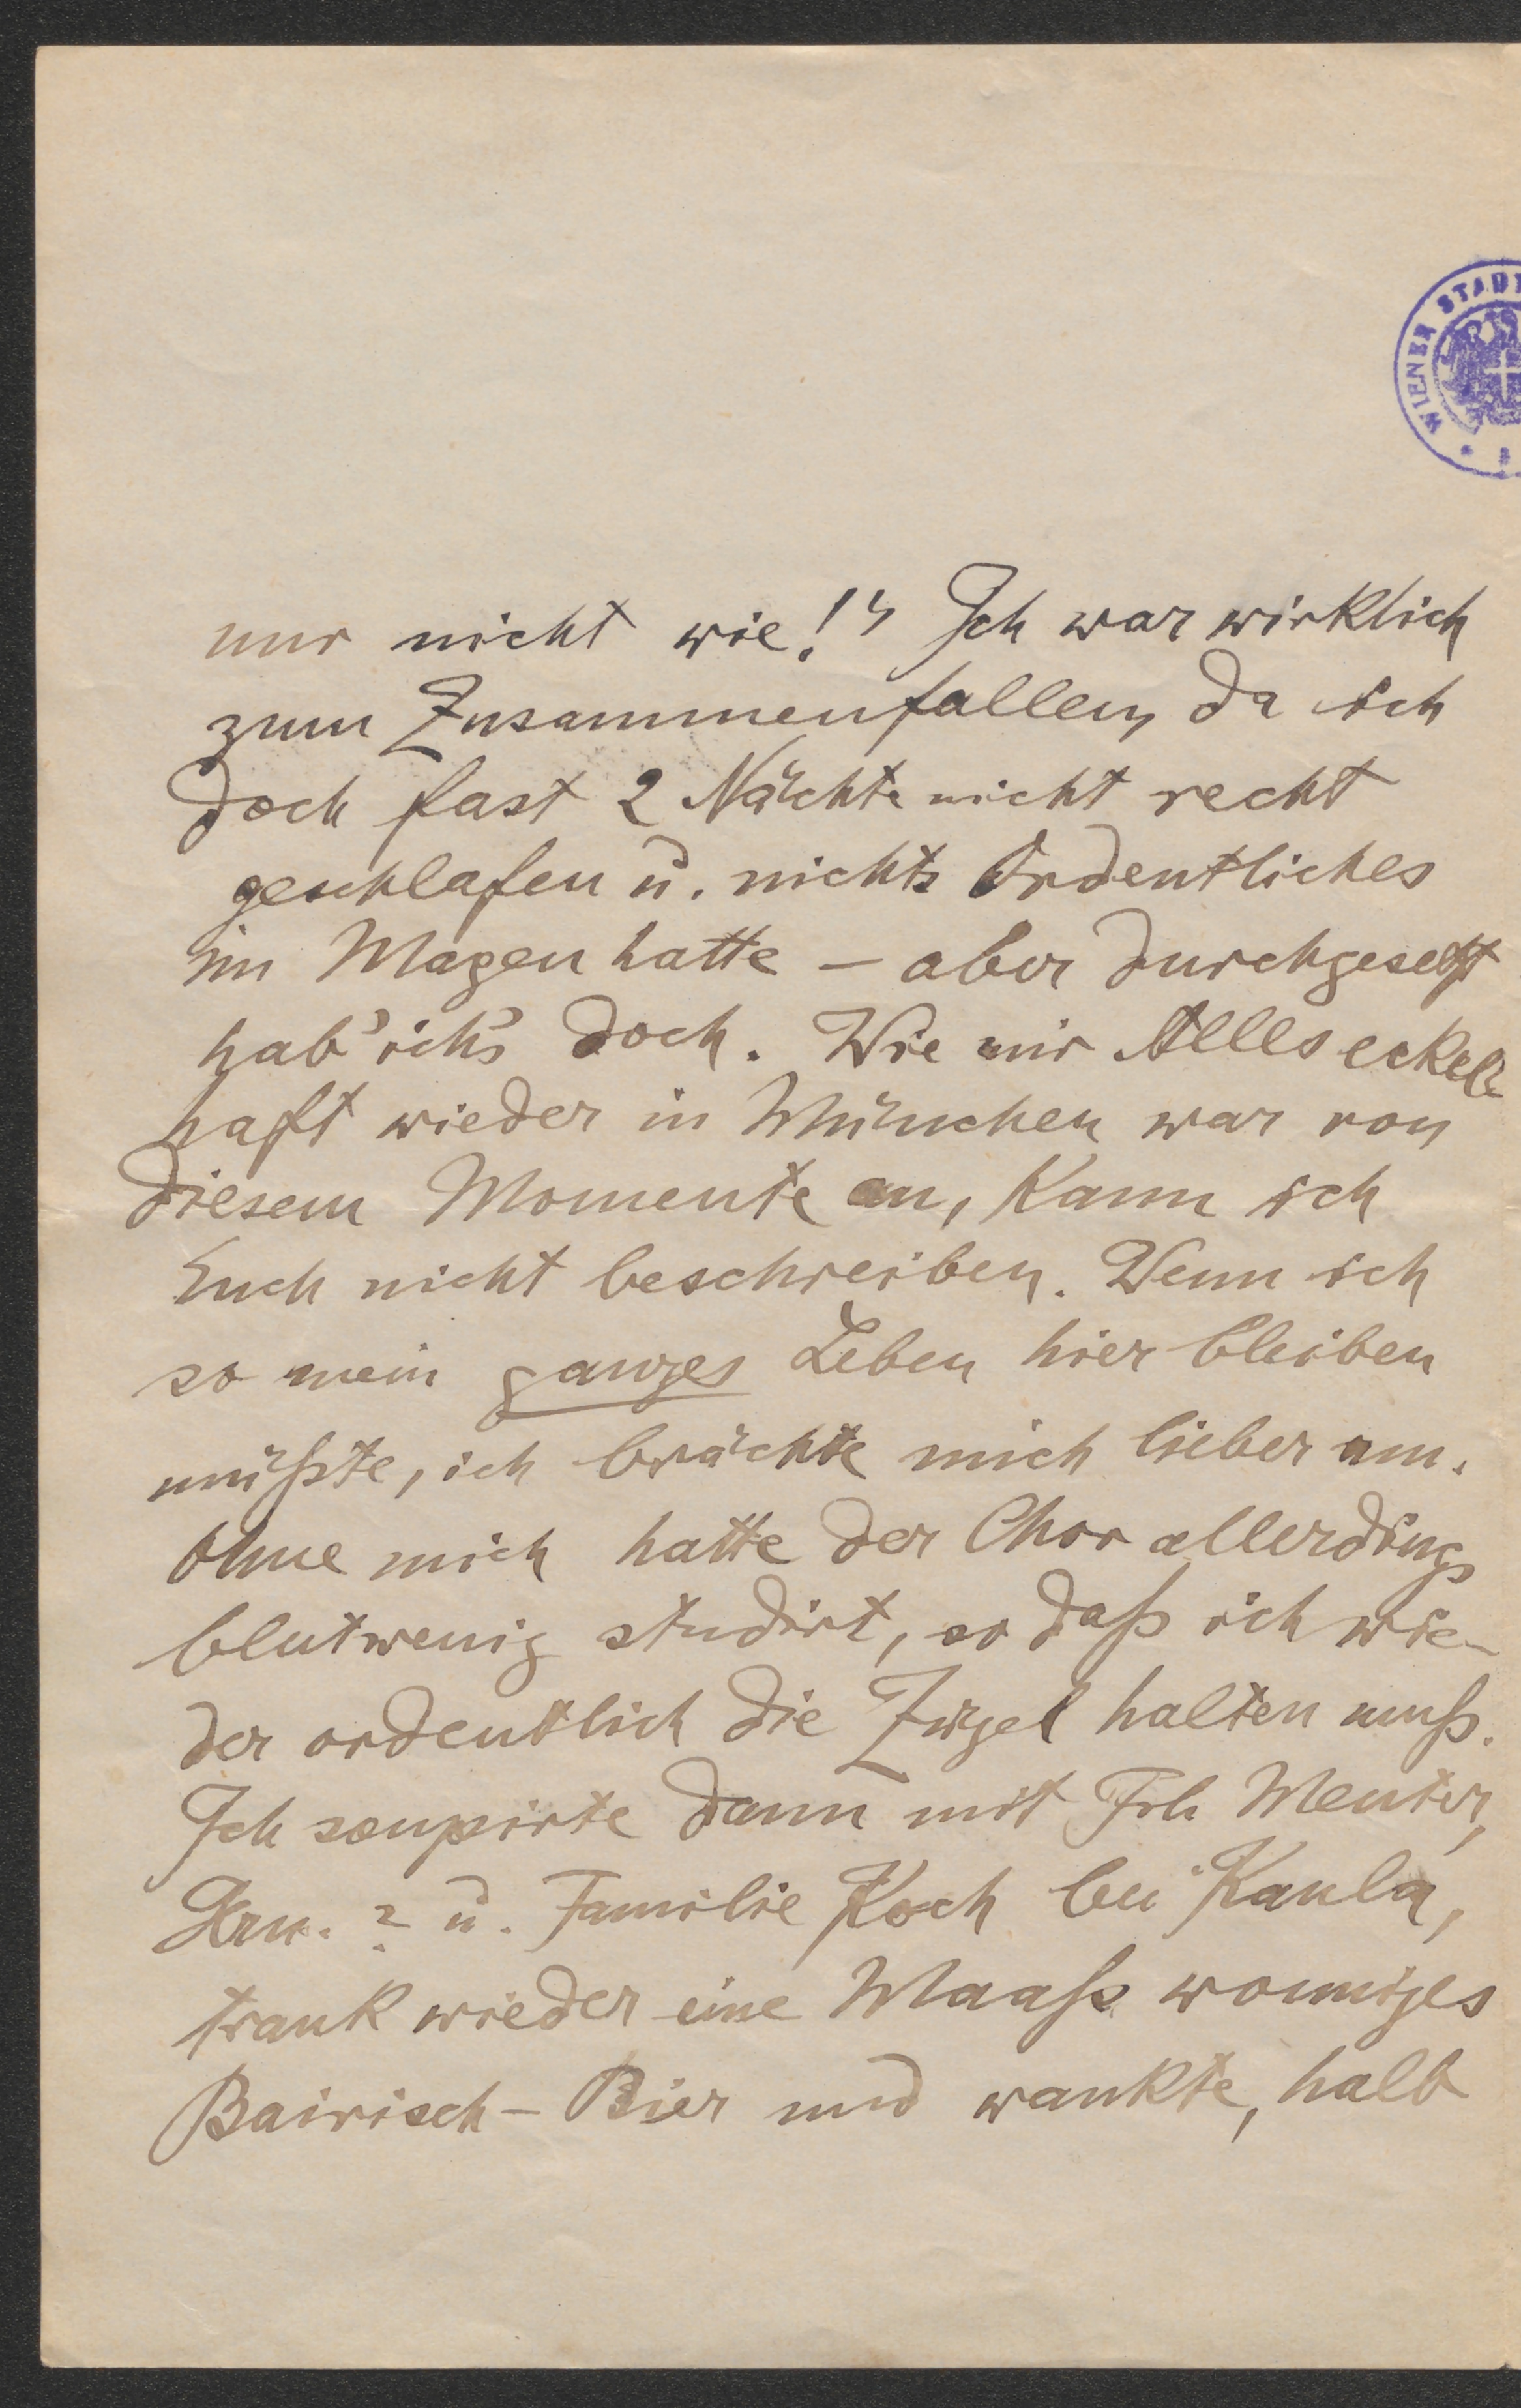 WIENER STADT
nur nicht wie!" Ich war wirklich
zum Zusammenfallen, da ich
doch fast 2 Nächte nicht recht
geschlafen u. nichts Ordentliches
im Magen hatte – aber durchgesetzt
hab' ich's doch. Wie mir Alles eckel-
haft wieder in München war von
diesem Momente an, kann ich
Euch nicht beschreiben. Wenn ich
so mein ganzes Leben hier bleiben
müßte, ich brächte mich lieber um.
Ohne mich hatte der Chor allerdings
blutwenig studirt, so daß ich wie-
der ordentlich die Zügel halten muß.
Ich soupirte dann mit Frl. Menter,
Hrn. ? u. Familie Koch bei Kaula,
trank wieder eine Maaß wonniges
Bairisch-Bier und wankte, halb